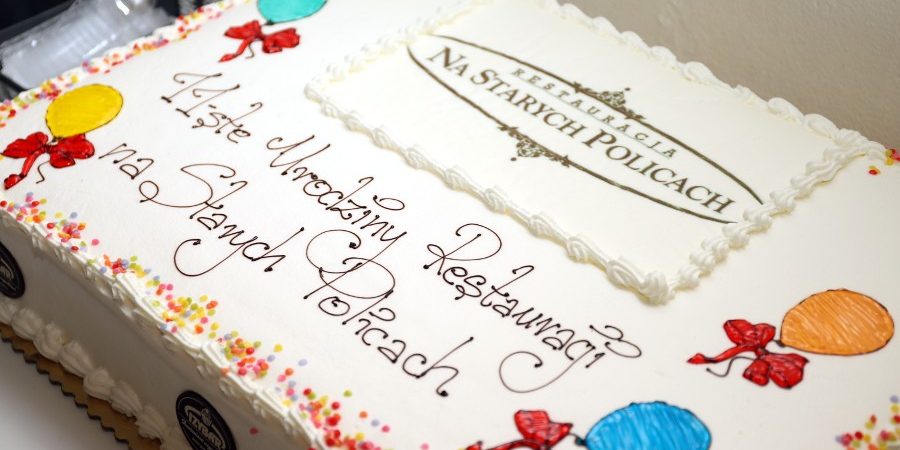 RESTAURACJA
NA STARYCH POLICACH
11-ste Urodziny Restauracji
na Starych Policach